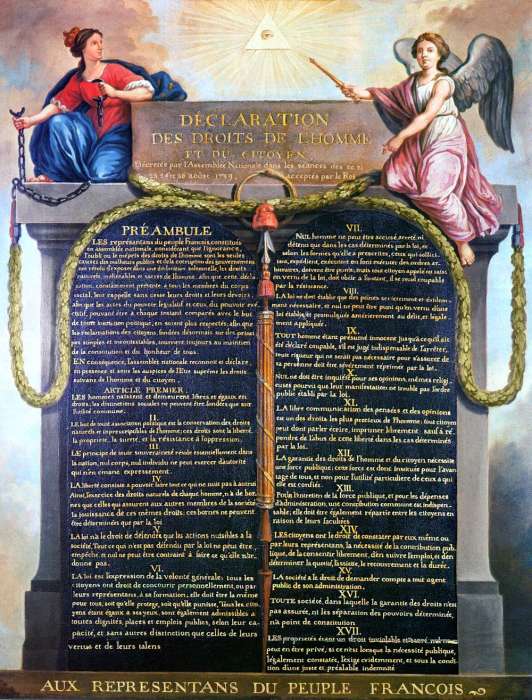 DÉCLARATION
DES DROITS DE L'HOMME
ET DU CITOYEN,
Décretés par l'Assemblée Nationale dans les séances des 20. 21
23. 24 et 26 aoust 1789, acceptés par le Roi
PRÉAMBULE
LES représentans du peuple Francois, constitués
en assemblée nationale, considérant que l'ignorance,
l'oubli ou le mépris des droits de l'homme sont les seules
causes des malheurs publics et de la corruption des gouvernemens
ont résolu d'exposer dans une déclaration solemnelle, les droits
naturels, inaliénables et sacrés de l'homme; afin que cette décla
ration, constamment présente à tous les membres du corps
social, leur rappelle sans cesse leurs droits et leurs devoirs;
afin que les actes du pouvoir législatif et ceux du pouvoir exé
cutif, pouvant être à chaque instant comparés avec le but
de toute institution politique, en soient plus respectés; afin que
les réclamations des citoyens, fondées désormais sur des princi
pes simples et incontestables, tournent toujours au maintien
de la constitution et du bonheur de tous.
EN conséquence, l'assemblée nationale reconnoit et déclare,
en présence et sous les auspices de l'Etre suprême les droits
suivans de l'homme et du citoyen.
ARTICLE PREMIER.
LES hommes naissent et demeurent libres et égaux en
droits; les distinctions sociales ne peuvent être fondées que sur
l'utilité commune.
II.
LE but de toute association politique est la conservation des droits
naturels et imprescriptibles de l'homme; ces droits sont la liberté,
la propriété, la sureté, et la résistance à l'oppression.
III.
LE principe de toute souveraineté réside essentiellement dans
la nation, nul corps, nul individu ne peut exercer d'autorité
qui n'en émane expressement.
IV.
LA liberté consiste à pouvoir faire tout ce qui ne nuit pas à autrui
Ainsi, l'exercice des droits naturels de chaque homme, n'a de bor
nes que celles qui assurent aux autres membres de la société
la jouissance de ces mêmes droits; ces bornes ne peuvent
être déterminées que par la loi.
V.
LA loi n'a le droit de défendre que les actions nuisibles à la
société. Tout ce qui n'est pas défendu par la loi ne peut être
empêché, et nul ne peut être contraint à faire ce qu'elle n'or
donne pas.
VI.
LA loi est l'expression de la volonté générale; tous les
citoyens ont droit de concourir personnellement, ou par
leurs représentans, à sa formation; elle doit être la même
pour tous, soit qu'elle protege, soit qu'elle punisse. Tous les citoy
ens étant égaux à ses yeux, sont également admissibles à
toutes dignités, places et emplois publics, selon leur ca
pacité, et sans autres distinction que celles de leurs
vertus et de leurs talens
VII.
NUL homme ne peut être accusé, arreté ni
détenu que dans les cas déterminés par la loi, et
selon les formes qu'elle a prescrites, ceux qui sollici
tent, expédient, exécutent ou font exécuter des ordres ar
bitraires, doivent être punis, mais tout citoyen appelé ou saisi
en vertu de la loi, doit obéir à l'instant, il se rend coupable
par la résistance.
VIII.
LA loi ne doit établir que des peines strictement et évidem
ment nécessaire, et nul ne peut être puni qu'en vertu d'une
loi établie et promulguée antérieurement au délit, et légale
ment appliquée.
IX.
TOUT homme étant présumé innocent jusqu'à ce qu'il ait
été déclaré coupable, s'il est jugé indispensable de l'arrêter,
toute rigueur qui ne serait pas nécessaire pour s'assurer de
sa personne doit être sévèrement réprimée par la loi.
X.
NUL ne doit être inquiété pour ses opinions, mêmes religi
euses pourvu que leur manifestation ne trouble pas l'ordre
public établi par la loi.
XI.
LA libre communication des pensées et des opinions
est un des droits les plus précieux de l'homme; tout citoyen
peut donc parler écrire, imprimer librement: sauf à ré
pondre de l'abus de cette liberté dans les cas déterminés
par la loi.
XII.
LA garantie des droits de l'homme et du citoyen nécessite
une force publique; cette force est donc instituée pour l'avan
tage de tous, et non pour l'utilité particuliere de ceux a qui
elle est confiée.
XIII.
POUR l'entretien de la force publique, et pour les dépenses
d'administration, une contribution commune est indispen
sable; elle doit être également répartie entre les citoyens en
raison de leurs facultés
XIV.
LES citoyens ont le droit de constater par eux même ou
par leurs représentans, la nécessité de la contribution pub
lique, de la consentir librement, d'en suivre l'emploi, et d'en
déterminer la quotité, l'assiette, le recouvrement et la durée.
XV.
LA société a le droit de demander compte a tout agent
public de son administration.
XVI.
TOUTE société, dans laquelle la garantie des droits n'est
pas assurée, ni la séparation des pouvoirs déterminée,
n'a point de constitution.
XVII.
LES propriétés étant un droit inviolable et sacré, nul ne
peut en être privé, si ce n'est lorsque la nécessité publique,
légalement constatée, l'exige evidemment, et sous la condi
tion d'une juste et préalable indemnité.
AUX REPRESENTANS DU PEUPLE FRANCOIS